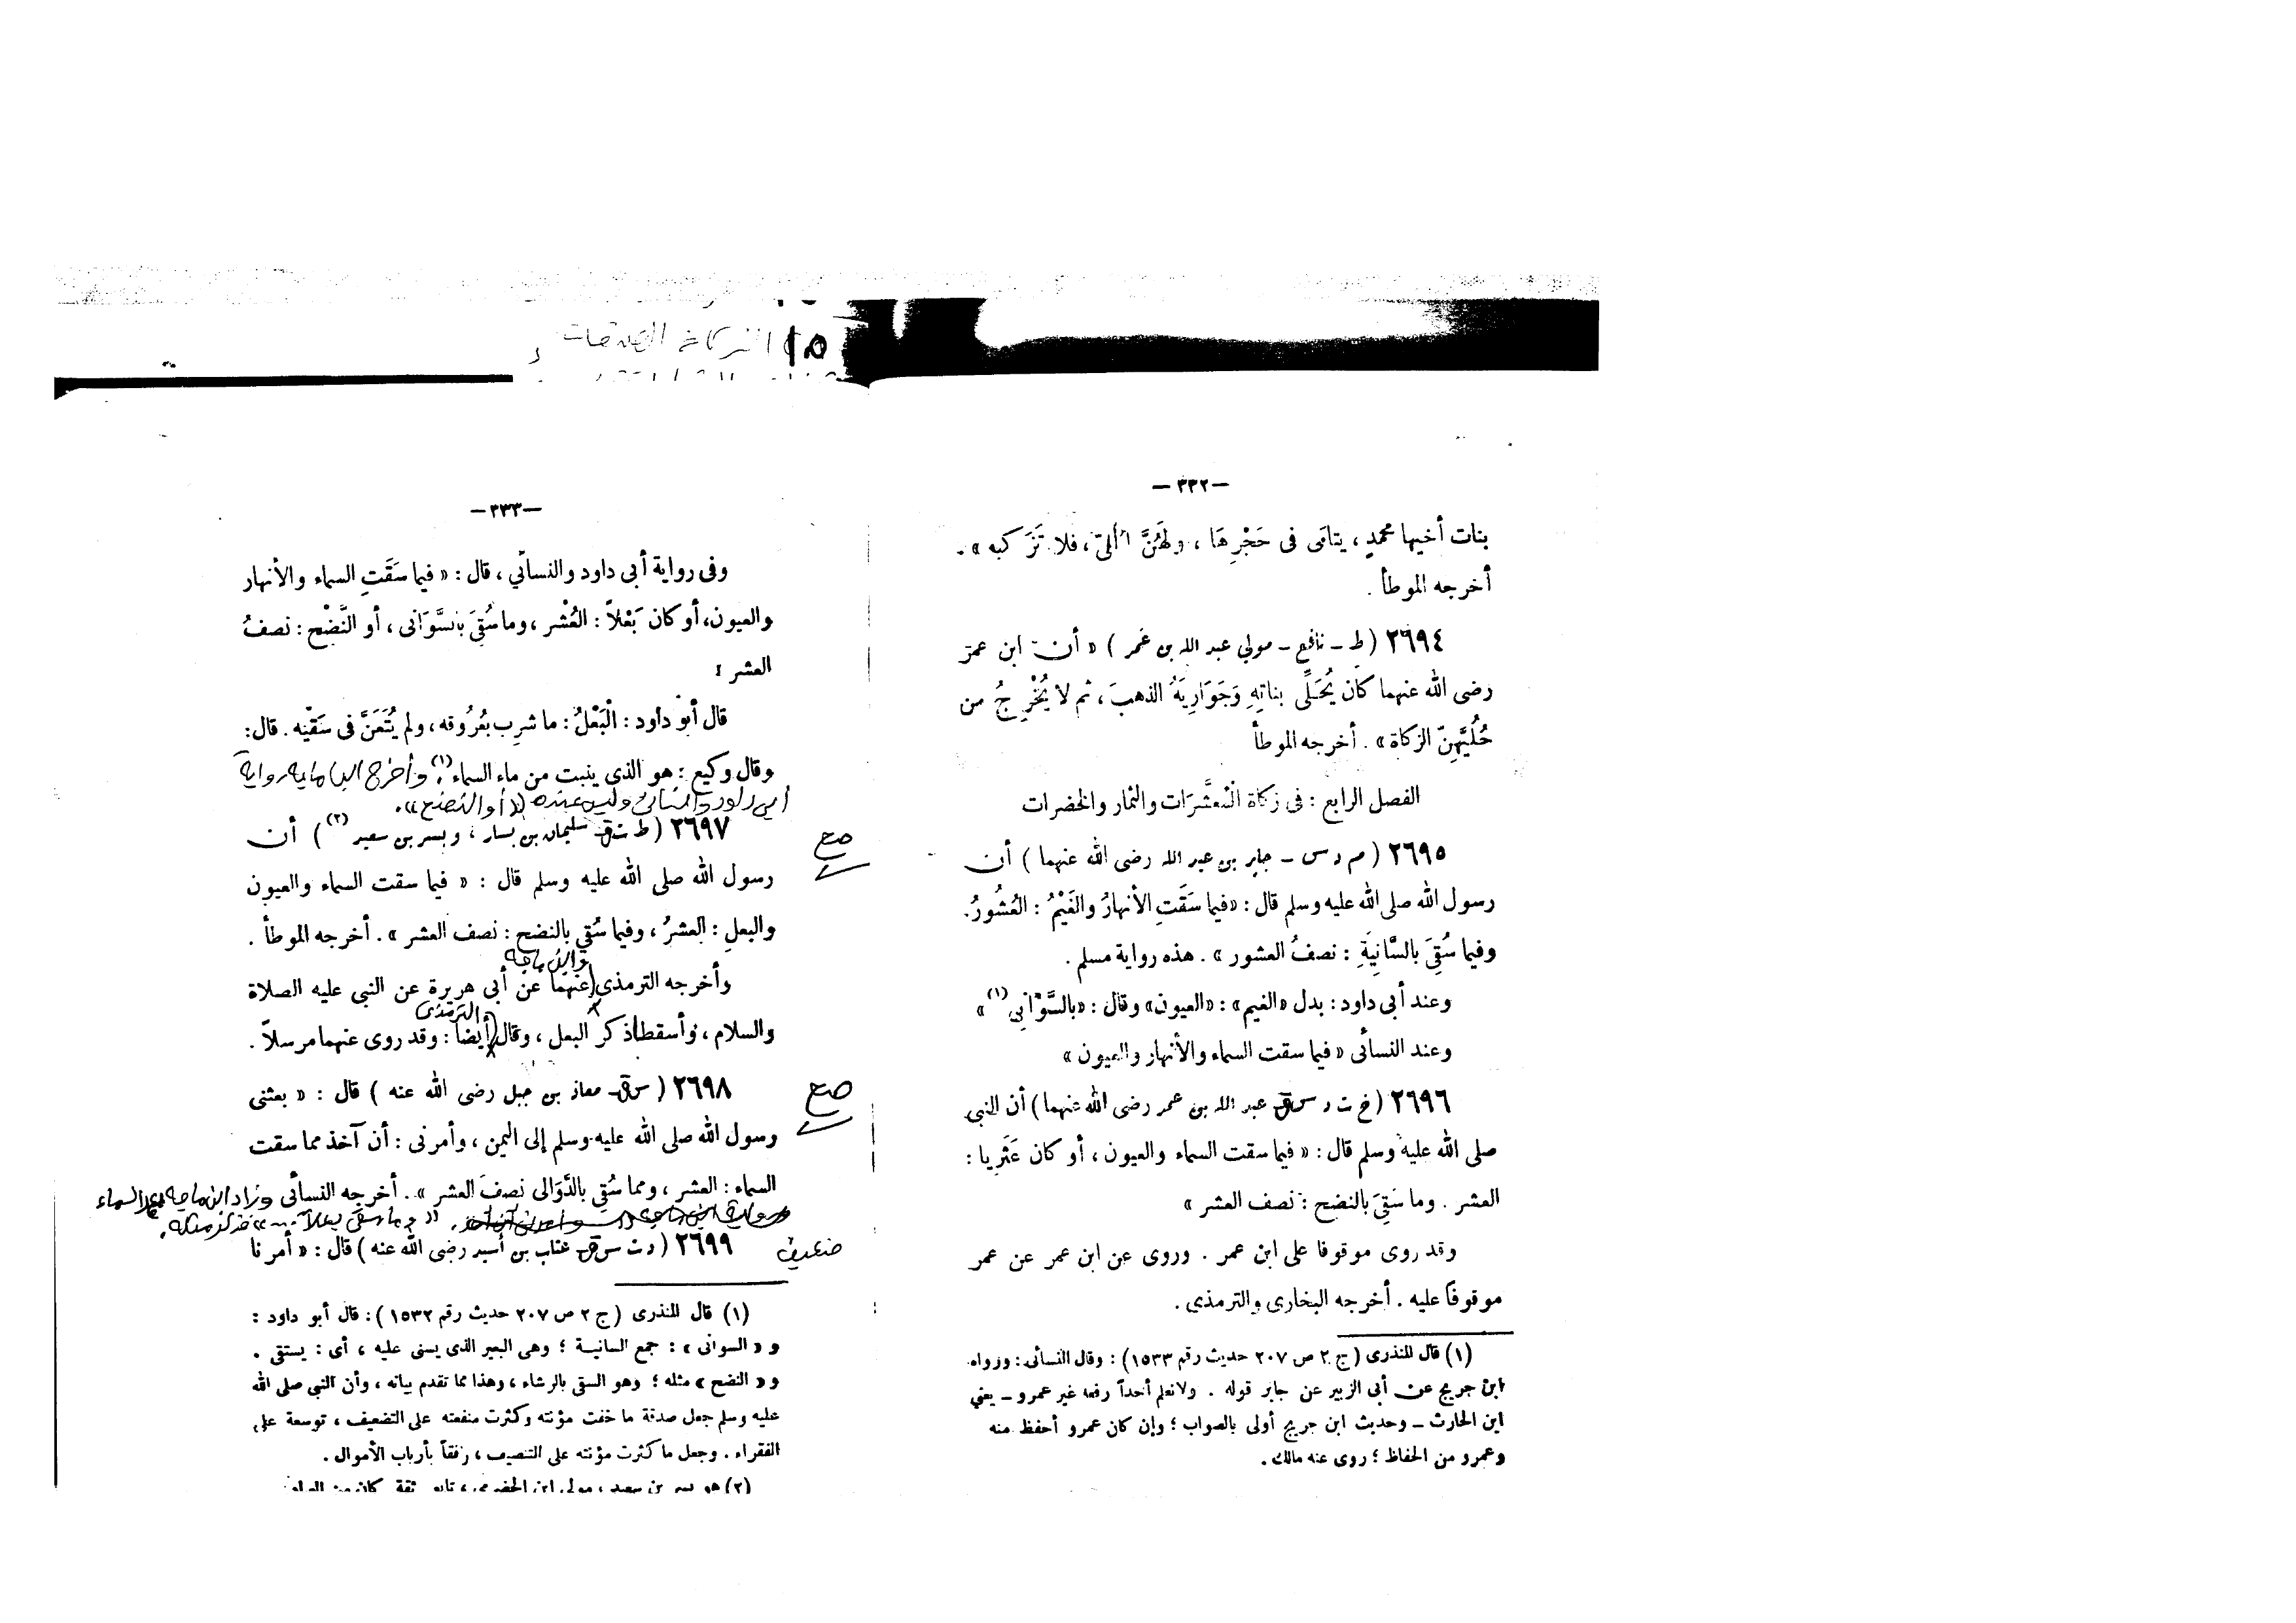 ١٥ الزكاة الصدقات
—٣٣٢—
بنات أخيها محمدٍ ، يتامَى فى حَجْرِهَا ، ولهُنَّ الْحُلىّ ، فلا تُزَكيه » .
أخرجه الموطأ .
٢٦٩٤ ( ط – نافع – مولي عبد الله بن عُمر ) « أن ابن عمرَ
رضى الله عنهما كان يُحَلِّى بناتِهِ وَجَوَارِيَهُ الذهبَ ، ثم لا يُخْرِجُ من
حُلِيِّهِنّ الزكاة » . أخرجه الموطأ
الفصل الرابع : فى زكاة الْمُعشَّرَات والثمار والخضرات
٢٦٩٥ ( م د س – جابر بن عبد الله رضى الله عنهما ) أن
رسول الله صلى الله عليه وسلم قال : «فيما سَقَتِ الأنهارُ والغَيْمُ : العُشُورُ.
وفيما سُقِيَ بالسَّانِيَةِ : نصفُ العشور » . هذه رواية مسلم .
وعند أبى داود : بدل «الغيم» : «العيون» وقال : «بالسَّوَانِي (١) »
وعند النسائى « فيما سقت السماء والأنهار والعيون »
٢٦٩٦ ( خ ت د س ق عبد الله بن عمر رضى الله عنهما ) أن النبي
صلى الله عليه وسلم قال : « فيما سقت السماء والعيون ، أو كان عَثَرِيا :
العشر . وما سُقِيَ بالنضح : نصف العشر »
وقد روى موقوفا على ابن عمر . وروى عن ابن عمر عن عمر
موقوفًا عليه . أخرجه البخارى والترمذى .
(١) قال المنذرى ( ج ٢ ص ٢٠٧ حديث رقم ١٥٣٣) : وقال النسائى : ورواه
ابن جريج عن أبى الزبير عن جابر قوله . ولا نعلم أحداً رفعه غير عمرو – يعني
ابن الحارث – وحديث ابن جريج أولى بالصواب ؛ وإن كان عمرو أحفظ منه
وعمرو من الحفاظ ؛ روى عنه مالك .
—٣٣٣—
وفى رواية أبى داود والنسائي ، قال : « فيما سَقَتِ السماء والأنهار
والعيون، أو كان بَعْلاً : العُشْر ، وما سُقِيَ بالسَّوَانى ، أو النَّضْح : نصفُ
العشر :
قال أبو داود : الْبَعْلُ : ما شرِب بعُرُوقه ، ولم يُتَعَنَّ فى سَقْيه . قال :
وقال وكيع : هو الذى ينبت من ماء السماء (١) . وأخرج ابن ماجه رواية
أبي داود والنسائى وليس عنده «أو النضح» .
٢٦٩٧ ( ط ت ق سليمان بن يسار ، وبسر بن سعيد (٢) ) أن
صح
رسول الله صلى الله عليه وسلم قال : « فيما سقت السماء والعيون
والبعلِ : العشرُ ، وفيما سُقي بالنضح : نصف العشر » . أخرجه الموطأ .
وأخرجه الترمذى وابن ماجه عنهما عن أبى هريرة عن النبي عليه الصلاة
والسلام ، وأسقطا ذكر البعل ، وقال الترمذى أيضا : وقد روى عنهما مرسلاً .
٢٦٩٨ ( س ق معاذ بن جبل رضى الله عنه ) قال : « بعثنى
صح
رسول الله صلى الله عليه وسلم إلى اليمن ، وأمرنى : أن آخذ مما سقت
السماء : العشر ، ومما سُقِي بالدَّوَالى نصفَ العشر » . أخرجه النسائى وزاد ابن ماجه بعد السماء
« وما سقي بعلاً » فذكر مثله .
٢٦٩٩ ( د ت س ق عتاب بن أسيد رضى الله عنه ) قال : « أمرنا
ضعيف
(١) قال المنذرى ( ج ٢ ص ٢٠٧ حديث رقم ١٥٣٢ ) : قال أبو داود :
و « السوانى » : جمع السانية ؛ وهى البعير الذى يسنى عليه ، أى : يستقى .
و « النضح » مثله ؛ وهو السقى بالرشاء ، وهذا مما تقدم بيانه ، وأن النبي صلى الله
عليه وسلم جعل صدقة ما خفت مؤنته وكثرت منفعته على التضعيف ، توسعة على
الفقراء . وجعل ما كثرت مؤنته على التنصيف ، رفقاً بأرباب الأموال .
(٢) هو بسر بن سعيد ، مولى ابن الحضرمى ، تابعى ثقة كان من